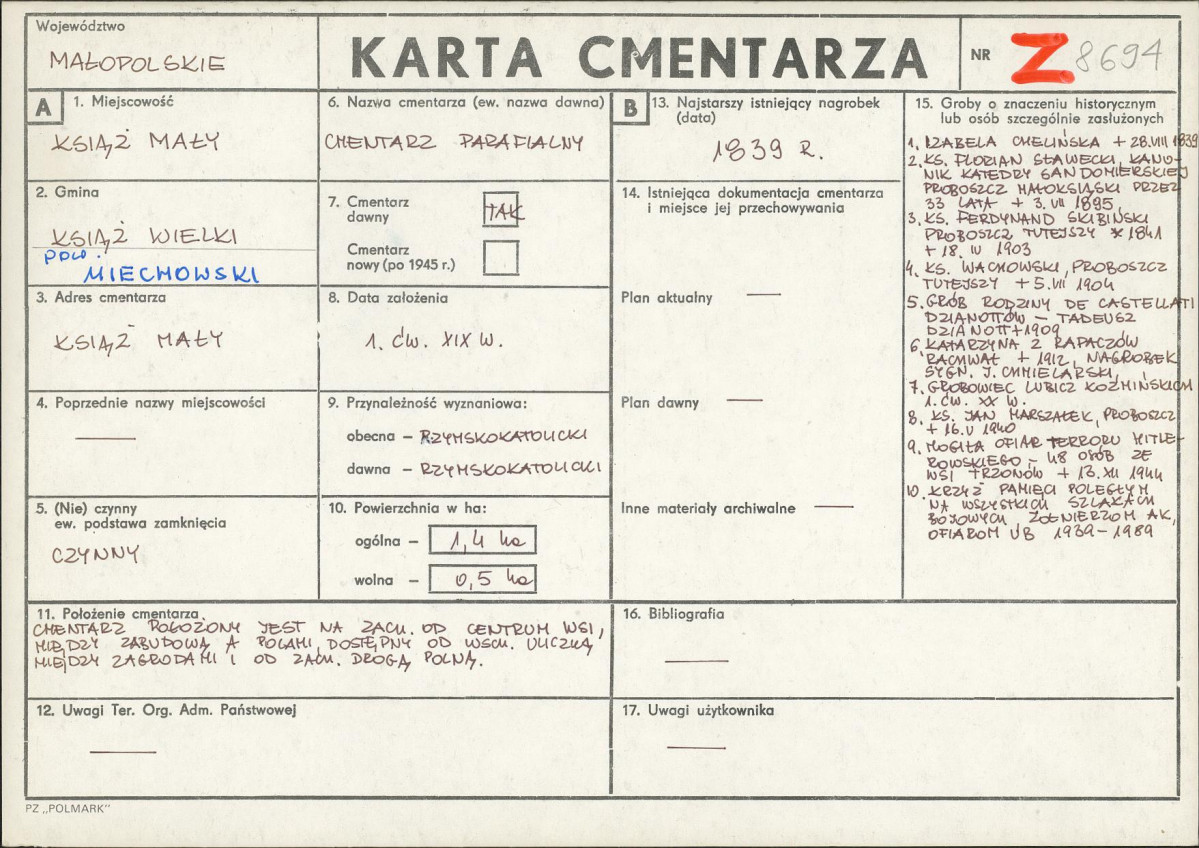 Województwo
MAŁOPOLSKIE
KARTA CMENTARZA
NR Z 8694
A
1. Miejscowość
KSIĄŻ MAŁY
2. Gmina
KSIĄŻ WIELKI
pow.
MIECHOWSKI
3. Adres cmentarza
KSIĄŻ MAŁY
4. Poprzednie nazwy miejscowości
—
5. (Nie) czynny
ew. podstawa zamknięcia
CZYNNY
6. Nazwa cmentarza (ew. nazwa dawna)
CMENTARZ PARAFIALNY
7. Cmentarz
dawny
TAK
Cmentarz
nowy (po 1945 r.)
8. Data założenia
1. ĆW. XIX W.
9. Przynależność wyznaniowa:
obecna – RZYMSKOKATOLICKI
dawna – RZYMSKOKATOLICKI
10. Powierzchnia w ha:
ogólna – 1,4 ha
wolna – 0,5 ha
11. Położenie cmentarza
CMENTARZ POŁOŻONY JEST NA ZACH. OD CENTRUM WSI,
MIĘDZY ZABUDOWĄ A POLAMI, DOSTĘPNY OD WSCH. ULICZKĄ
MIĘDZY ZAGRODAMI I OD ZACH. DROGĄ POLNĄ.
12. Uwagi Ter. Org. Adm. Państwowej
—
B
13. Najstarszy istniejący nagrobek
(data)
1839 R.
14. Istniejąca dokumentacja cmentarza
i miejsce jej przechowywania
Plan aktualny —
Plan dawny —
Inne materiały archiwalne —
15. Groby o znaczeniu historycznym
lub osób szczególnie zasłużonych
1. IZABELA CHELIŃSKA + 28.VIII 1839
2. KS. FLORIAN SŁAWECKI, KANO-
NIK KATEDRY SANDOMIERSKIEJ
PROBOSZCZ MAŁOKSIĄSKI PRZEZ
33 LATA + 3. VII 1895,
3. KS. FERDYNAND SKIBIŃSKI
PROBOSZCZ TUTEJSZY * 1841
+ 18. IV 1903
4. KS. WACHOWSKI, PROBOSZCZ
TUTEJSZY + 5. VII 1904
5. GRÓB RODZINY DE CASTELLATI
DZIANOTTÓW – TADEUSZ
DZIANOTT + 1909
6. KATARZYNA Z RAPACZÓW
RACHWAŁ + 1912, NAGROBEK
SYGN. J. CHMIELARSKI,
7. GROBOWIEC LUBICZ KOŹMIŃSKICH
1. ĆW. XX W.
8. KS. JAN MARSZAŁEK, PROBOSZCZ
+ 16. V 1940
9. MOGIŁA OFIAR TERRORU HITLE-
ROWSKIEGO – 48 OSÓB ZE
WSI TRZONÓW + 13. XII 1944
10. KRZYŻ PAMIĘCI POLEGŁYM
NA WSZYSTKICH SZLAKACH
BOJOWYCH ŻOŁNIERZOM AK,
OFIAROM UB 1939–1989
16. Bibliografia
—
17. Uwagi użytkownika
—
PZ „POLMARK"